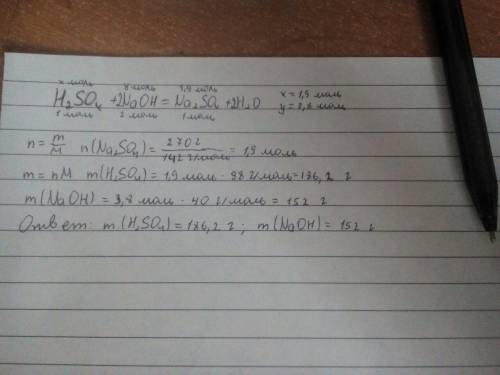 x моль y моль 1,9 моль
H₂SO₄ + 2NaOH = Na₂SO₄ + 2H₂O x = 1,9 моль
1 моль 2 моль 1 моль y = 3,8 моль
n = m/M n(Na₂SO₄) = 270 г/142 г/моль = 1,9 моль
m = nM m(H₂SO₄) = 1,9 моль · 98 г/моль = 186,2 г
m(NaOH) = 3,8 моль · 40 г/моль = 152 г
Ответ: m(H₂SO₄) = 186,2 г; m(NaOH) = 152 г